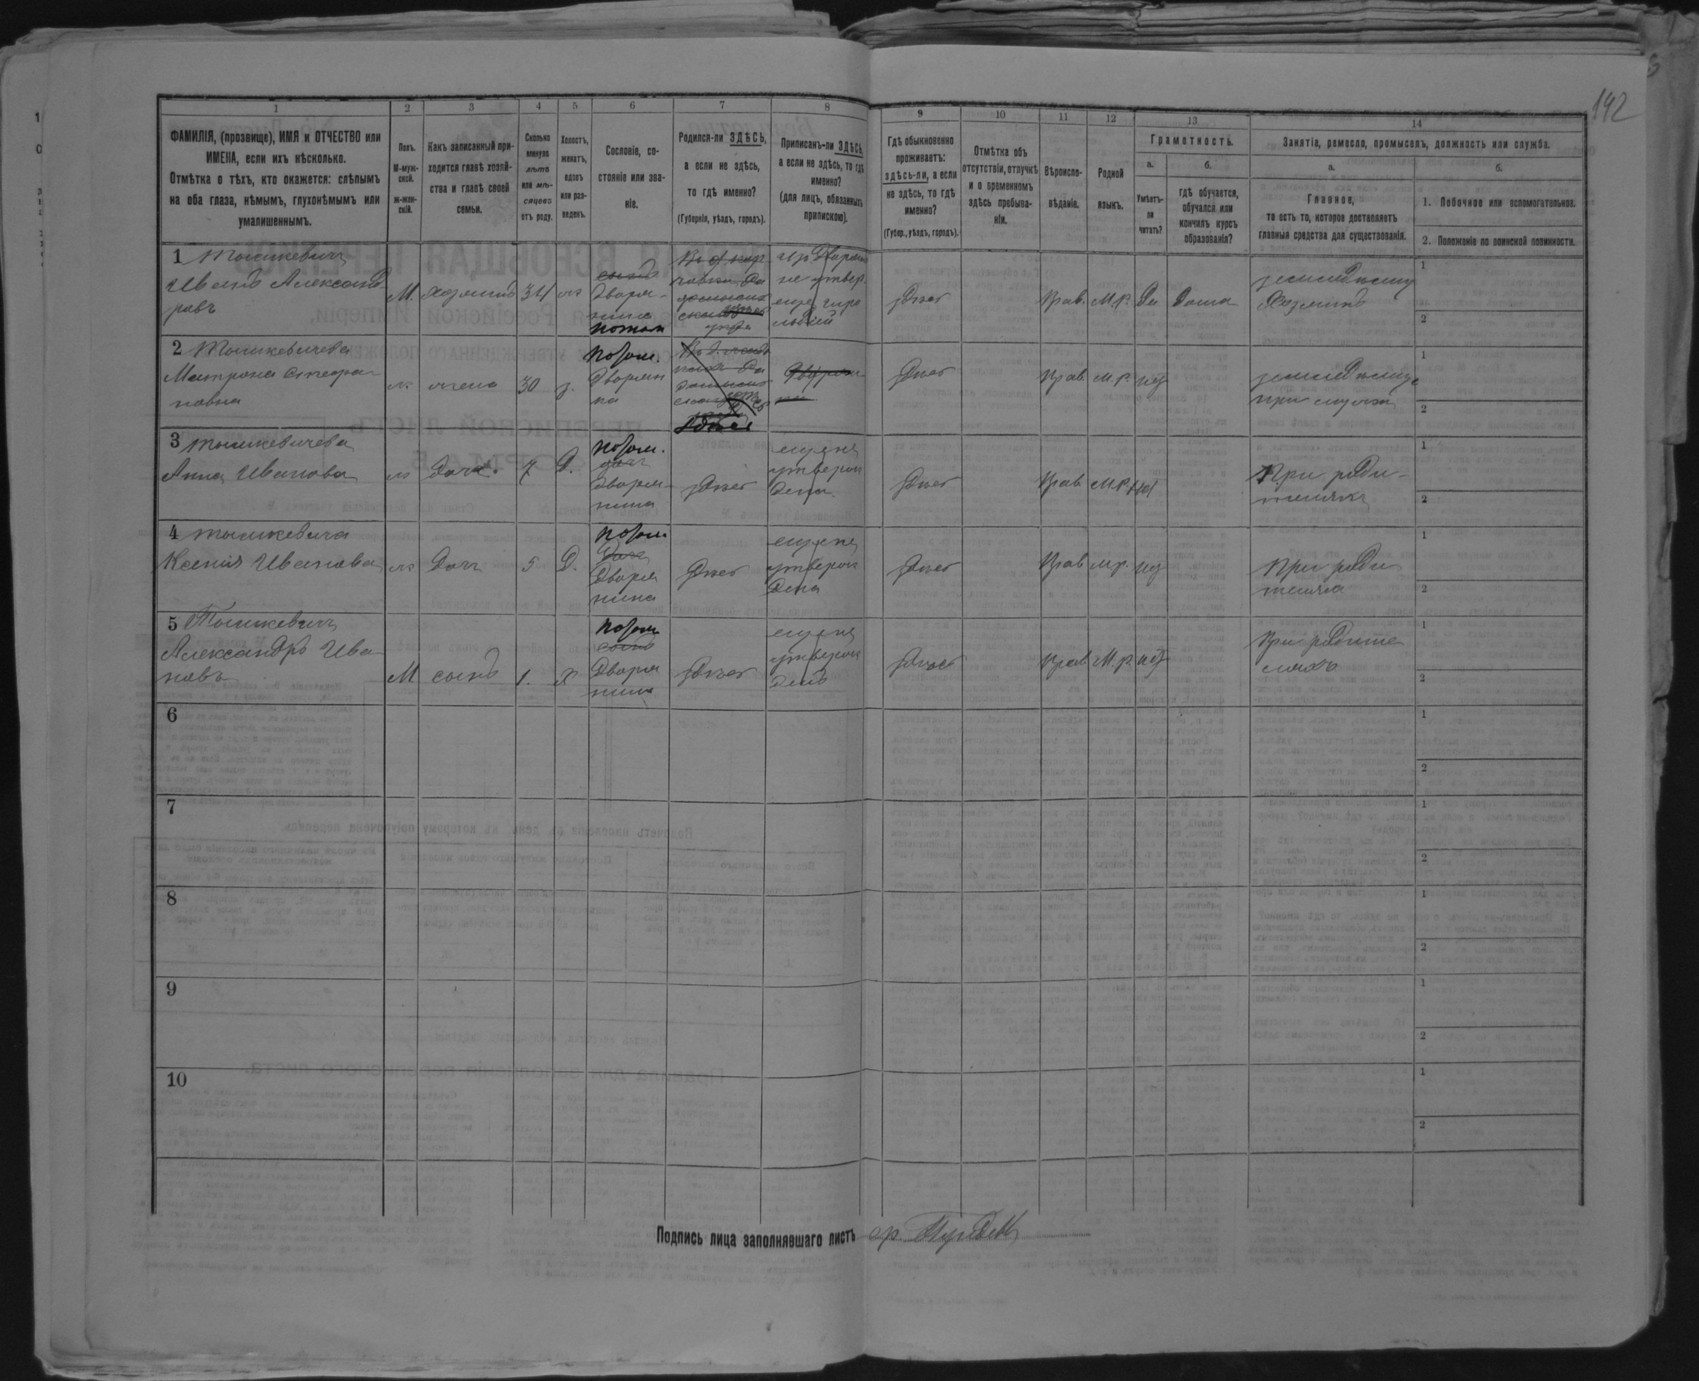 192
1
2
3
4
5
6
7
8
9
10
11
12
13
14
ФАМИЛІЯ, (прозвище), ИМЯ и ОТЧЕСТВО или
ИМЕНА, если ихъ нѣсколько.
Отмѣтка о тѣхъ, кто окажется: слѣпымъ
на оба глаза, нѣмымъ, глухонѣмымъ или
умалишеннымъ.
Полъ.
М-муж-
ской.
ж-жен-
скій.
Какъ записанный при-
ходится главѣ хозяй-
ства и главѣ своей
семьи.
Сколько
минуло
лѣтъ
или мѣ-
сяцевъ
отъ роду.
Холостъ,
женатъ,
вдовъ
или раз-
веденъ.
Сословіе, со-
стояніе или зва-
ніе.
Родился-ли ЗДѢСЬ,
а если не здѣсь,
то гдѣ именно?
(Губернія, уѣздъ, городъ).
Приписанъ-ли ЗДѢСЬ,
а если не здѣсь, то гдѣ
именно?
(для лицъ, обязанныхъ
припискою).
Гдѣ обыкновенно
проживаетъ:
здѣсь-ли, а если
не здѣсь, то гдѣ
именно?
(Губер., уѣздъ, городъ).
Отмѣтка объ
отсутствіи, отлучкѣ
и о временномъ
здѣсь пребыва-
ніи.
Вѣроиспо-
вѣданіе.
Родной
языкъ.
Грамотность.
а.
Умѣетъ-
ли
читать?
б.
гдѣ обучается,
обучался или
кончилъ курсъ
образованія?
Занятіе, ремесло, промыселъ, должность или служба.
а.
Главное,
то есть то, которое доставляетъ
главныя средства для существованія.
б.
1. Побочное или вспомогательное.
2. Положеніе по воинской повинности.
1 Тышкевичъ
Иванъ Александ
ровъ
М.
хозяинъ
34
ж
дворя-
нинъ
потом
здѣсь
Прав.
М.р.
Да
Дома
земледѣлецъ
Хозяинъ
1
2
2 Тышкевичева
Матрона Степа-
новна
ж
жена
30
з.
потом.
Дворян
ка
здѣсь
здѣсь
Прав.
м.р.
нѣ
земледѣлецъ
при мужѣ
1
2
3 Тышкевичева
Анна Иванова
ж
Дочь.
7
Д.
потом.
Дворя
нина
здѣсь
еще не
утвержде
дена
здѣсь
Прав
м.р.
нѣ
При роди-
теляхъ
1
2
4 Тышкевича
Ксенія Иванова
ж
Дочь
5
Д.
потом
Дворя
нина
здѣсь
еще не
утверж
дена
здѣсь
Прав
м.р.
нѣ
При роди
теляхъ
1
2
5 Тышкевичъ
Александръ Ива
новъ
М
сынъ
1.
Х
потом
Дворя
нина
здѣсь
еще не
утверж
денъ
здѣсь
Прав
М.р.
нѣ
При родите
ляхъ
1
2
6
1
2
7
1
2
8
1
2
9
1
2
10
1
2
Подпись лица заполнявшаго листъ